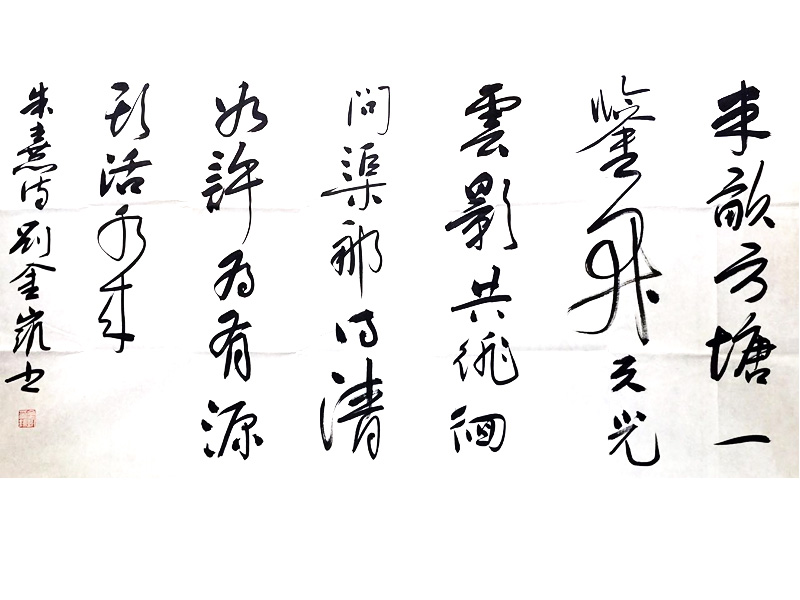 半畝方塘一
鑒開天光
雲影共徘徊
問渠那得清
如許為有源
頭活水來
朱熹诗劉金书